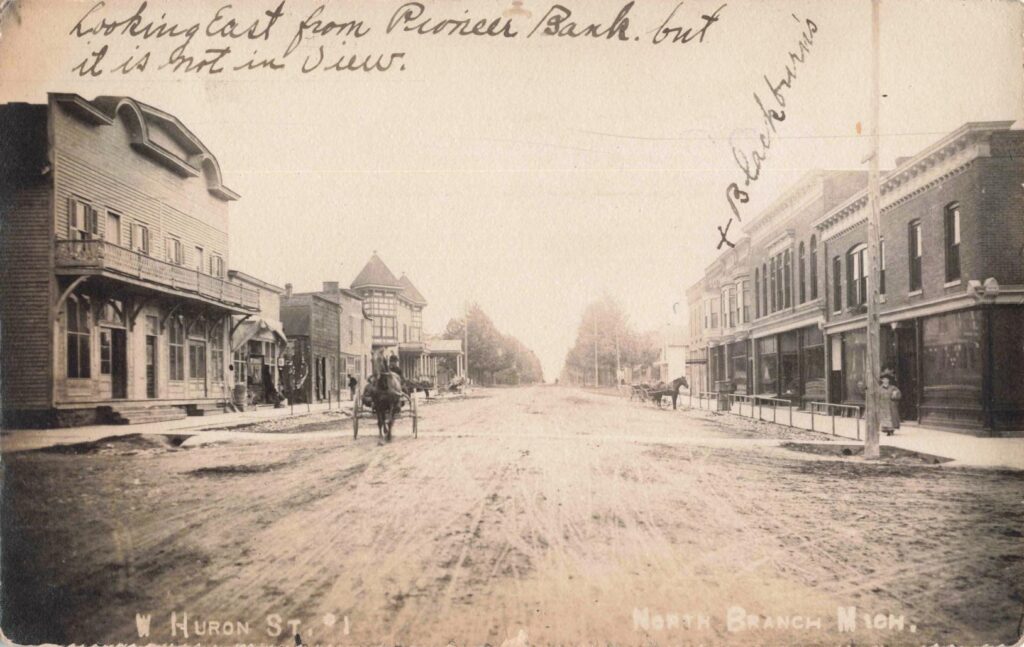 Looking East from Pioneer Bank. but
it is not in View.
x Blackburn's
W Huron St. #1
North Branch Mich.